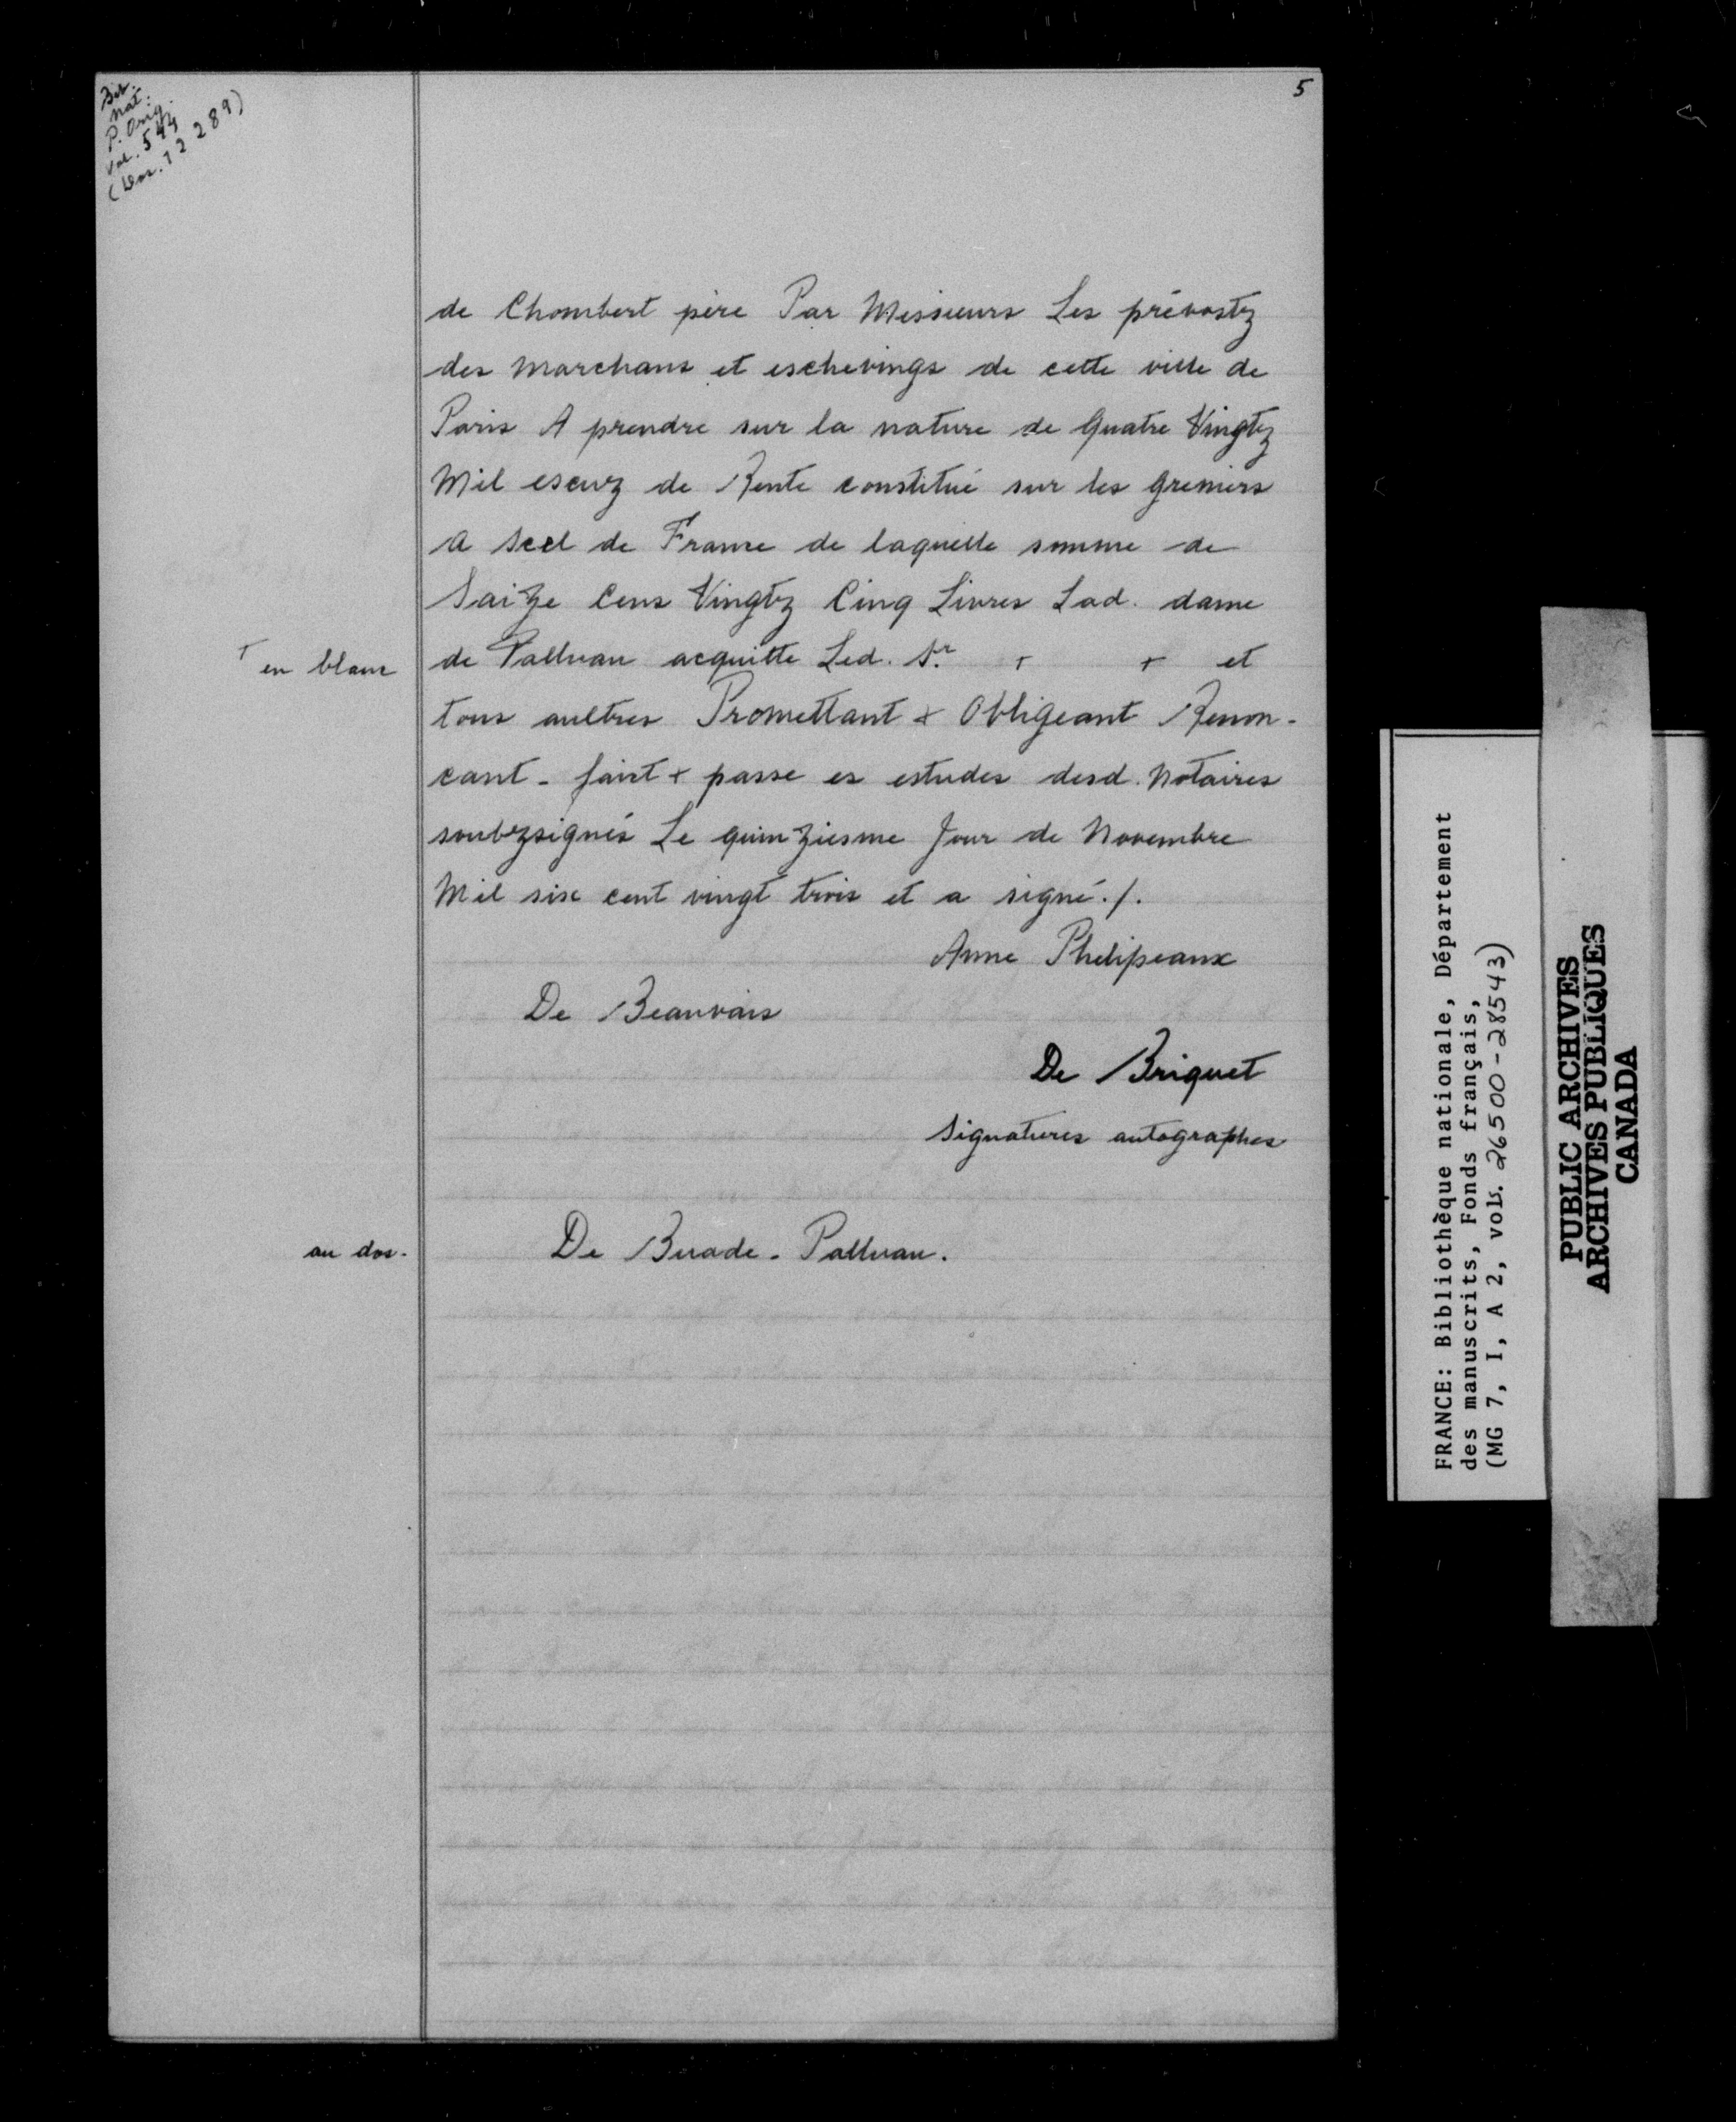 5
Bib.
nat.
P. Orig.
Vol. 544
(Dos. 12 289)
de Chombert père Par Messieurs Les prévostz
des Marchans et eschevings de cette ville de
Paris A prendre sur la nature de Quatre Vingtz
Mil escuz de Rente constitué sur les greniers
a Seel de France de laquelle somme de
Saize Cens Vingtz Cinq Livres Lad. dame
de Palluau acquitte Led. Sr. + + et
+ en blanc
tous aultres Promettant & Obligeant Renon-
cant - faict & passe es estudes desd. Notaires
soubzsignés Le quinziesme Jour de Novembre
Mil six cent vingt trois et a signé./.
Anne Phelipeaux
De Beauvais
De Briquet
Signatures autographes
au dos.
De Buade - Palluau.
FRANCE: Bibliothèque nationale, Département
des manuscrits, Fonds français,
(MG 7, I, A 2, vols. 26500-28543)
PUBLIC ARCHIVES
ARCHIVES PUBLIQUES
CANADA